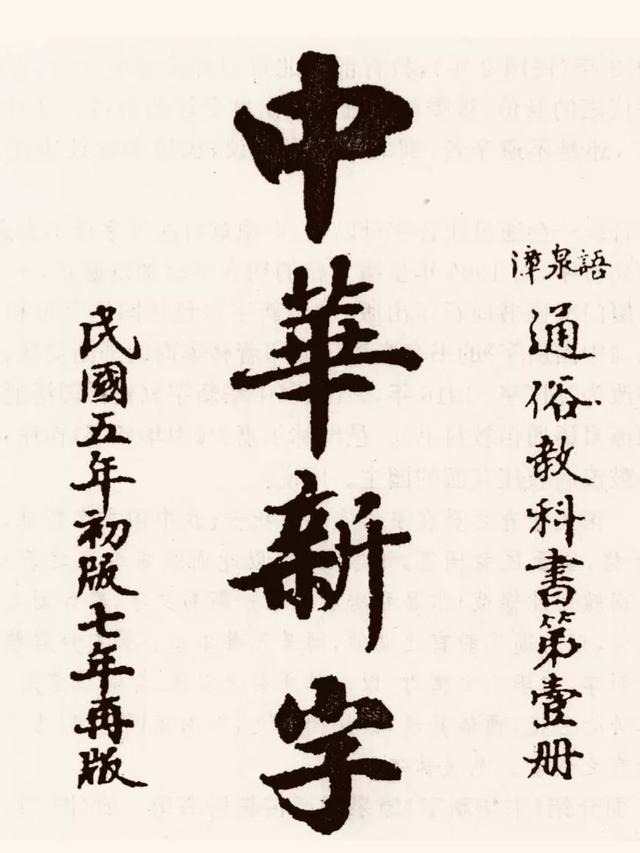 漳泉語
通俗教科書第壹册
中華新字
民國五年初版七年再版